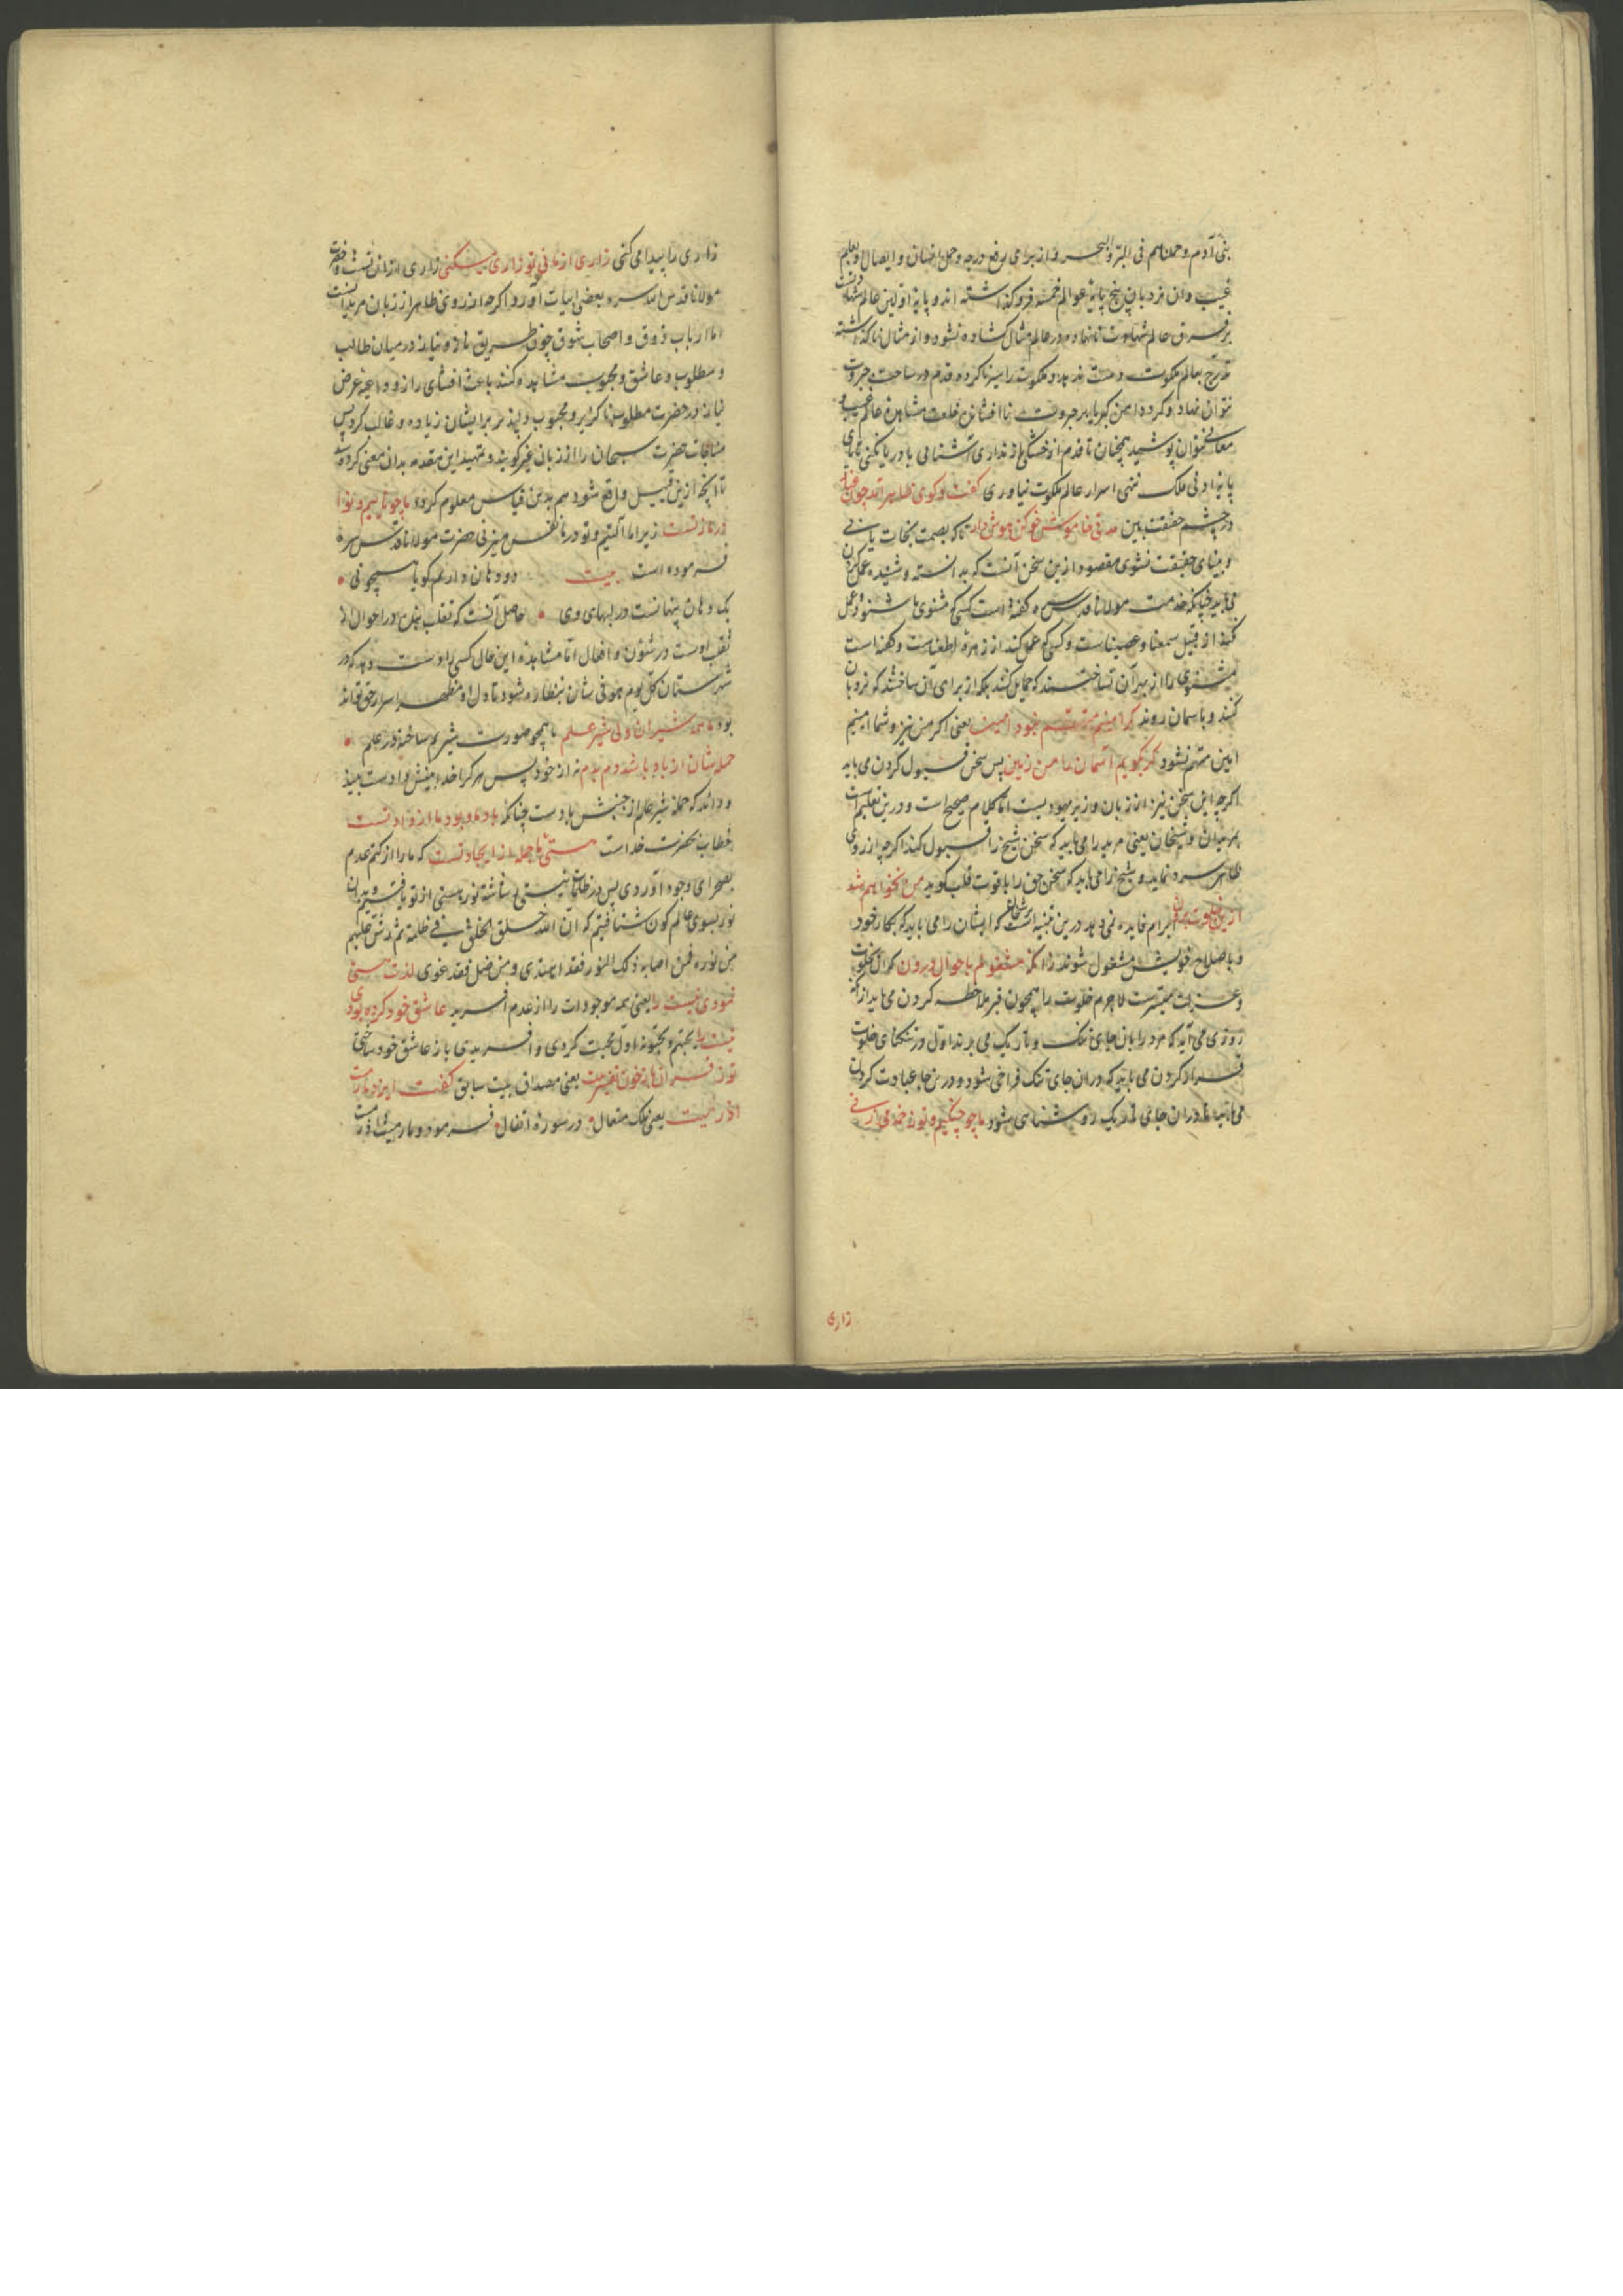 بنی آدم و حملناهم فی البر والبحر و از برای رفع درجه و حمل انسان و ایصال و تعلیم
غیب و ان نردبان پنج پایه عوالم خمسه فرو گذاشته اند و پایه اولین عالم شهادتست
فرق عالم شهادت نانهاده در عالم مثال گشاده نشود و از مثال ناگذشته
بعالم ملکوت دست ندهد و ملکوت را سیر ناکرده قدم در ساحت جبروت
نتوان نهاد و گرد دامن کبریا بر جبروت ناافشانده خلعت مشاهده عالم غیب و
معانی نتوان پوشید همچنان تا قدم از خشکی باز نداری آشنایی با دریا نکنی تا پای
پایه ادنی ملک ننهی اسرار عالم ملکوت نیاوری گفت و کوی ظاهر آمد چون غبار
در چشم حقیقت بین مدتی خاموش خو کن هوش دار تا که بصمت نجات یابی
و بینای حقیقت نشوی مقصود ازین سخن آنست که بدانسته و شنیده عمل کردن
می باید چنانکه خدمت مولانا قدس سره گفته است کسی که مثنوی ما شنود و عمل
نکند از قبیل سمعنا و عصیناست و کسی که عمل کند از زمره اطعناست و گفته است
مثنوی را از بهر آن نساختند که حمایل کنند بلکه از برای آن ساختند که نردبان
کنند و بآسمان روند گر امینم متهم نبود امین یعنی اگر من نیز و شما امینیم
امین متهم نشود گر بگویم آسمان را من زمین پس سخن قبول کردن می باید
اگرچه این سخن نیز از زبان وزیر یهودیست اما کلام صحیح است و درین تعلیم است
مریدان و شیخان یعنی مرید را می باید که سخن شیخ را قبول کند اگرچه از روی
ظاهر سرد نماید و شیخ را می باید که سخن حق را با قوت قلب گوید من نخواهم شد
ازین خلوت برون ابرام فایده نمی دهد درین تنبیه است مشایخ که ایشان را می باید که بکار خود
و باصلاح خویش مشغول شوند زانکه مشغولم باحوال درون گر آن خلوت
و عزلت میسرست لاجرم خلوت را همچون قبر ملاحظه کردن می باید از آنکه
روزی می آید که مرد را بان جای تنک و تاریک می برند اول در تنگنای خلوت
قرار کردن می باید که در ان جای تنک فراخی شود و درین جا عبادت کردن
می باید تا در ان جای تاریک روشنایی شود ما چو چنگیم و تو زخمه می زنی
زاری
زاری را پیدا می کنی زاری از ما نی تو زاری میکنی زاری از ان تست و حضرت
مولانا قدس الله سره بعضی ابیات آورد اگرچه از روی ظاهر از زبان مریدانست
اما ارباب ذوق و اصحاب شوق چون طریق ناز و نیاز در میان طالب
و مطلوب و عاشق و محبوب مشاهده کنند باعث افشای راز و داعیه عرض
نیاز در حضرت مطلوب ناگزیر و محبوب دلپذیر بر ایشان زیاده و غالب گردد پس
مناجات حضرت سبحان را از زبان غیر گویند و تمهید این مقدمه بدان معنی کرده شد
تا آنچه ازین قبیل واقع شود هم بدین قیاس معلوم گردد ما چو ناییم و نوا
در ما ز تست زیرا ما آلتیم و تو در ما نفس میزنی حضرت مولانا قدس سره
فرموده است بیت دو دهان داریم گویا همچو نی
یک دهان پنهانست در لبهای وی حاصل آنست که تقلب بنده در احوال از
تقلب اوست در شئون و افعال اما مشاهده این حال کسی را دست دهد که در
شهرستان کل یوم هو فی شان بنظاره شود تا دل او مظهر اسرار حق تواند
بود ما همه شیران ولی شیر علم ما همچو صورت شیریم ساخته در علم
حمله شان از باد باشد دم بدم نه از خود پس هر کرا خدا بینش داد است بیند
و داند که حمله شیر علم از جنبش باد است چنانکه باد ما و بود ما از داد تست
خطاب بحضرت خداست هستی ما جمله از ایجاد تست که ما را از کتم عدم
بصحرای وجود آوردی پس در ظلمات نیستی ناشناخته نور هستی از تو یافتیم و بدان
نور بسوی عالم کون شتافتیم که ان الله خلق الخلق فی ظلمة ثم رش علیهم
من نوره فمن اصابه ذلک النور فقد اهتدی و من ضل فقد غوی لذت هستی
نمودی نیست را یعنی همه موجودات را از عدم آفریدی عاشق خود کرده بودی
نیست را یحبهم و یحبونه اول محبت کردی و آفریدی باز عاشق خود ساختی
تو ز قرآن باز خوان تفسیر بیت یعنی مصداق بیت سابق گفت ایزد ما رمیت
اذ رمیت یعنی ملک متعال در سوره انفال فرمود و ما رمیت اذ رمیت